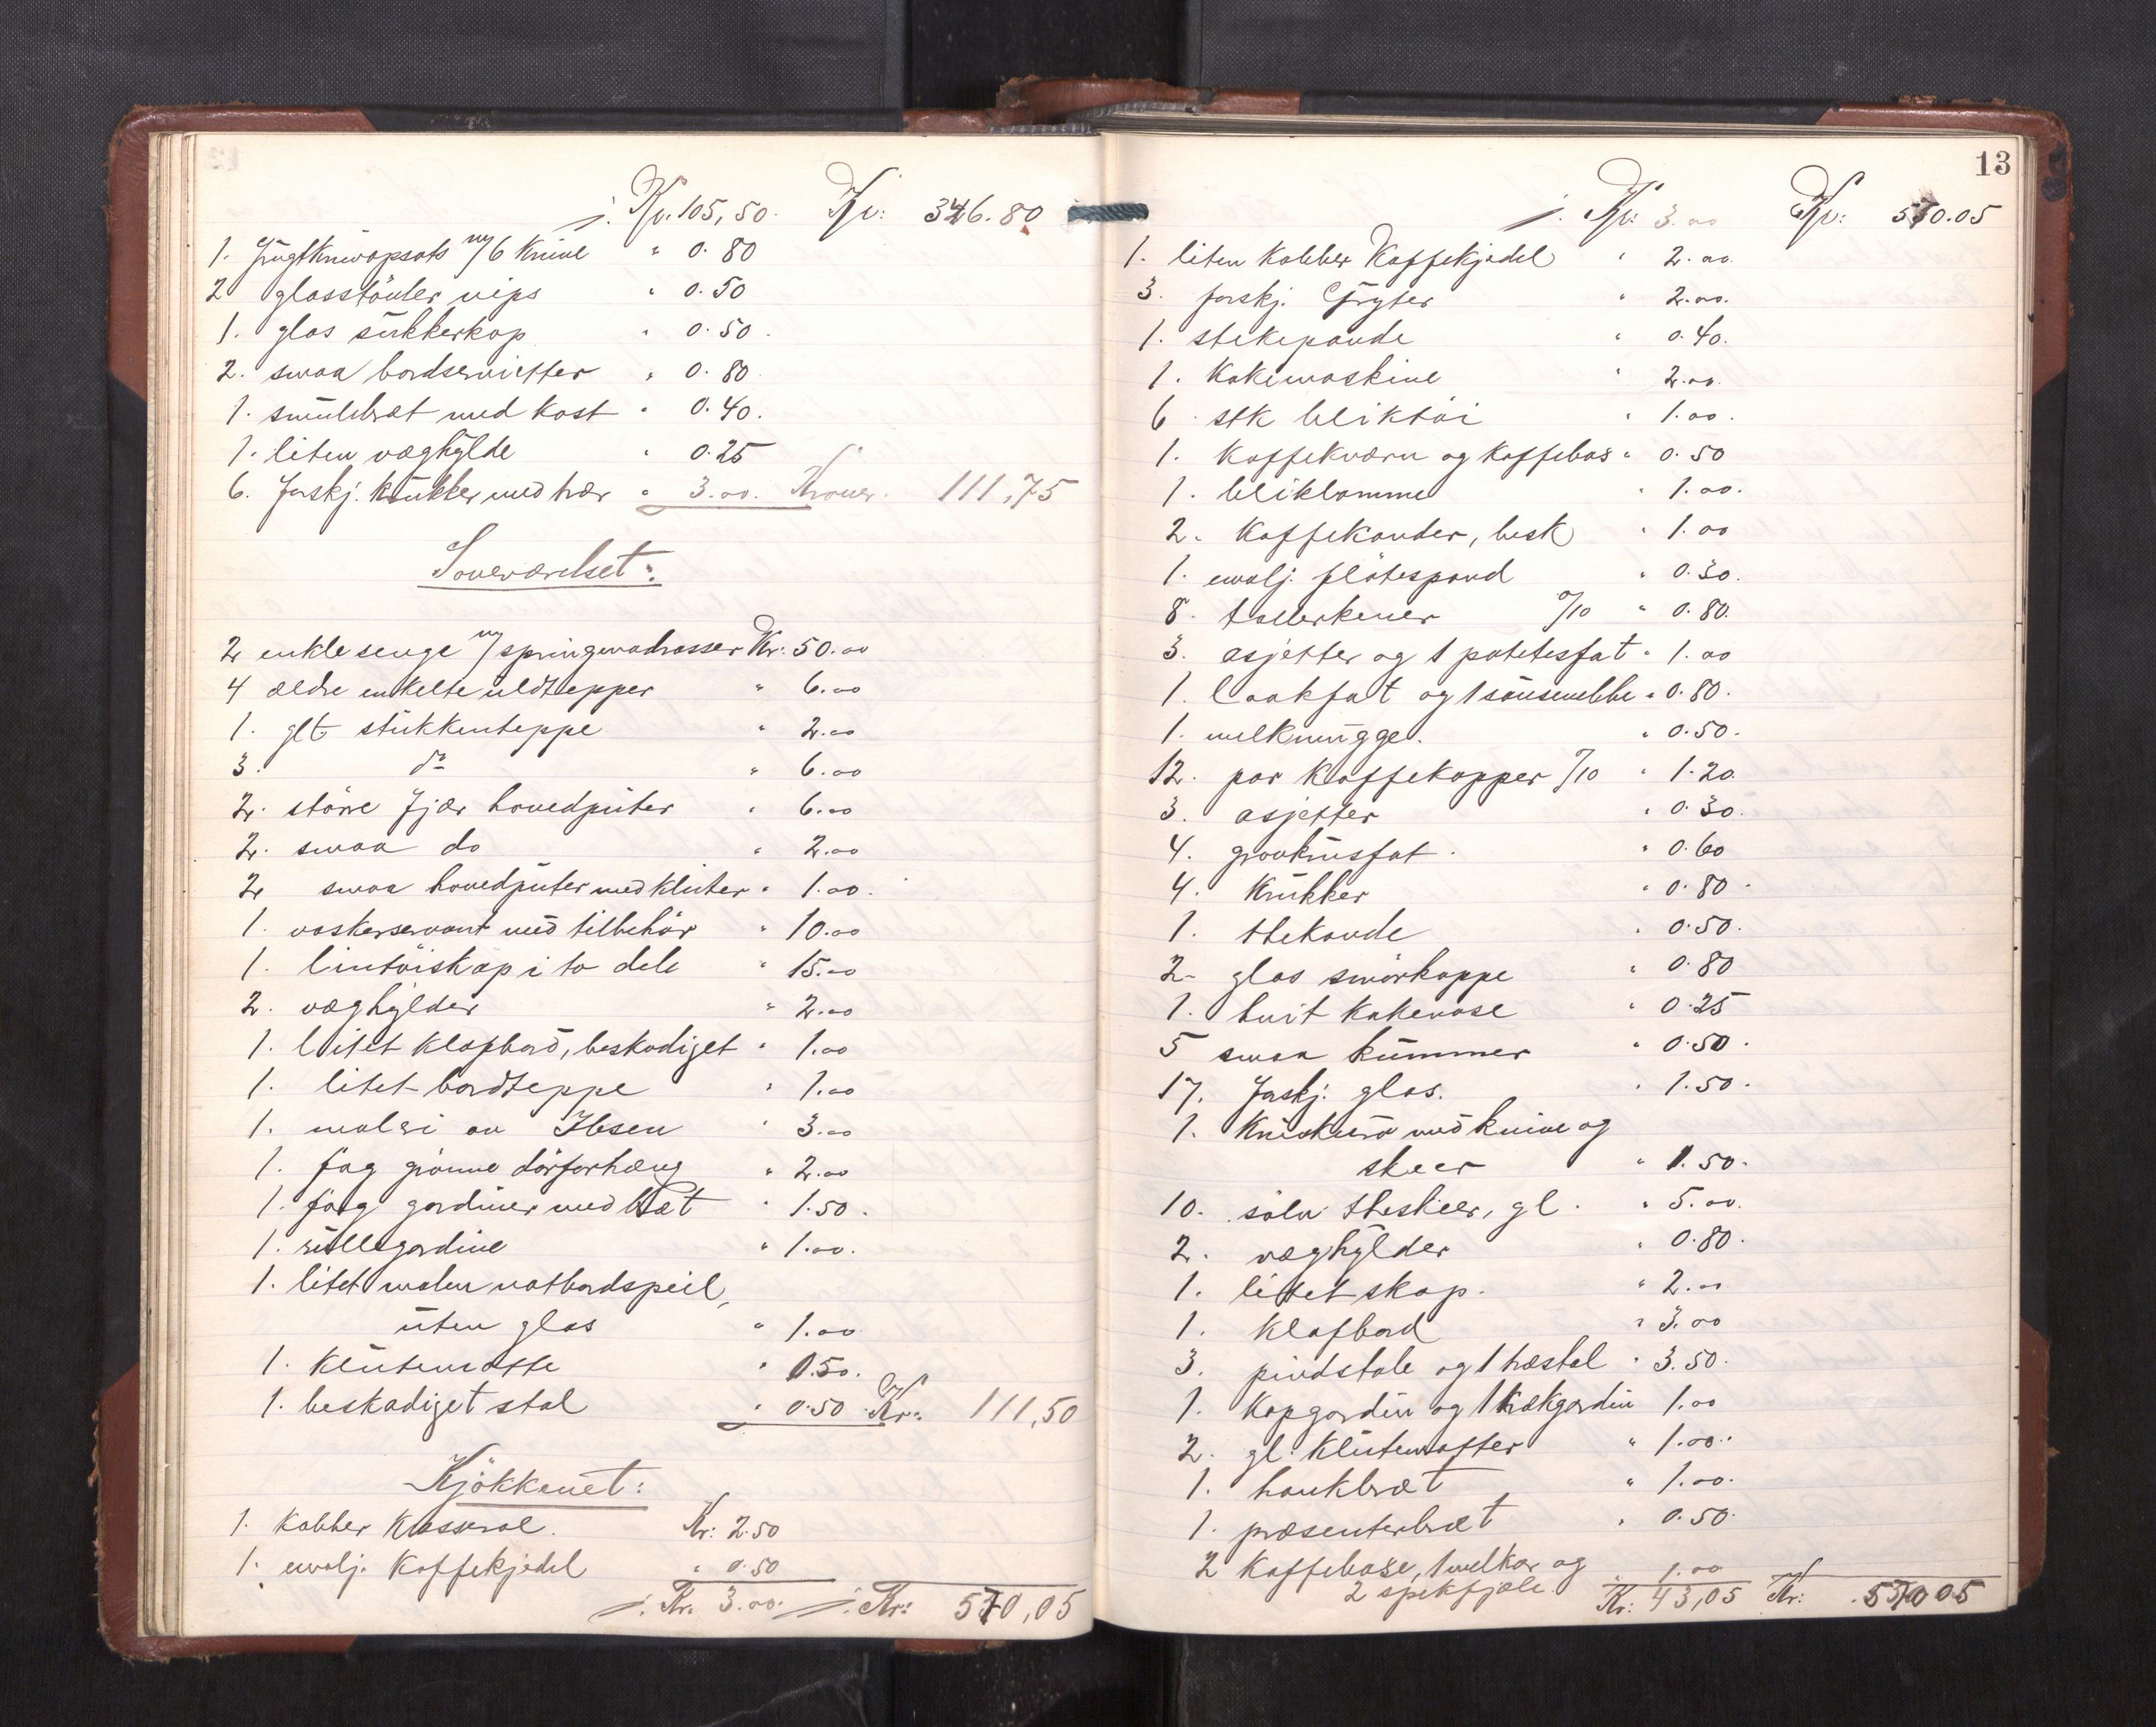 j. Kr. 105,50. Kr: 346.80
1. Frugtknivopsats m/6 Knive " 0.80
2 glasstöuler nips " 0.50
1. glas sukkerkop " 0.50.
2. smaa bordservietter " 0.80
1. smulebræt med Kost " 0.40.
1. liten væghylde " 0.25
6. forskj. Krukker med trær " 3.00. Kroner. 111,75
Soveværelset:
2 enkle senge m/springmadrasser Kr: 50.00
4 ældre enkelte uldtepper " 6.00
1. glt stukkenteppe " 2.00
3. do " 6.00
2. större fjær hovedputer " 6.00
2. smaa do " 2.00
2 smaa hovedputer med Kluter " 1.00.
1. vaskerservant med tilbehör " 10.00
1. lintöiskap i to dele " 15.00
2. væghylder " 2.00
1. litet klapbord, beskadiget " 1.00
1. litet bordteppe " 1.00
1. maleri av Ibsen " 3.00
1. fag grönne dörforhæng " 2.00
1. fag gardiner med bræt " 1.50.
1. rullegardine " 1.00.
1. litet malen natbordspeil,
uten glas " 1.00
1. Klutematte " 0.50.
1. beskadiget stol " 0.50 Kr: 111,50
Kjökkenet:
1. Kobber Kasserol. Kr: 2.50
1. emalj. Kaffekjedel " 0.50
j. Kr. 3.00. j. Kr: 570,05
13
j. Kr: 3.00 Kr: 570.05
1. liten Kobber Kaffekjedel " 2.00.
3. forskj. Gryter " 2.00.
1. stekepande " 0.40.
1. Kokemaskine " 2.00.
6 stk bliktöi " 1.00.
1. Kaffekværn og Kaffebös " 0.50
1. bliklomme " 1.00.
2. Kaffekander, besk " 1.00
1. emalj. flötespand " 0.30.
8. tallerkener a/10 " 0.80.
3. asjetter og 1 potetesfat " 1.00
1. Laakfat og 1 sausenebbe " 0.80.
1. melkmugge. " 0.50.
12. par Kaffekopper a/10 " 1.20.
3. asjetter " 0.30.
4. gravkrusfat. " 0.60
4. Krukker " 0.80.
1. thekande " 0.50.
2 glas smörkoppe " 0.80
1. hvit Kakevase " 0.25
5 smaa kummer " 0.50.
17. forskj. glas. " 1.50.
1. Knivkurv med knive og
skeer " 1.50.
10. sölv theskeer, gl. " 5.00.
2. væghylder " 0.80.
1. litet skap. " 2.00
1. Klafbord " 3.00
3. pindstole og 1 træstol " 3.50.
1. Kapgardin og 1 trækgardin 1.00
2. gl. Klutematter " 1.00.
1. hankbræt " 1.00.
1. præsenterbræt " 0.50.
2 Kaffebase, 1 melkar og " 1.00
2 spekfjæle. Kr: 43,05 Kr: 570 05